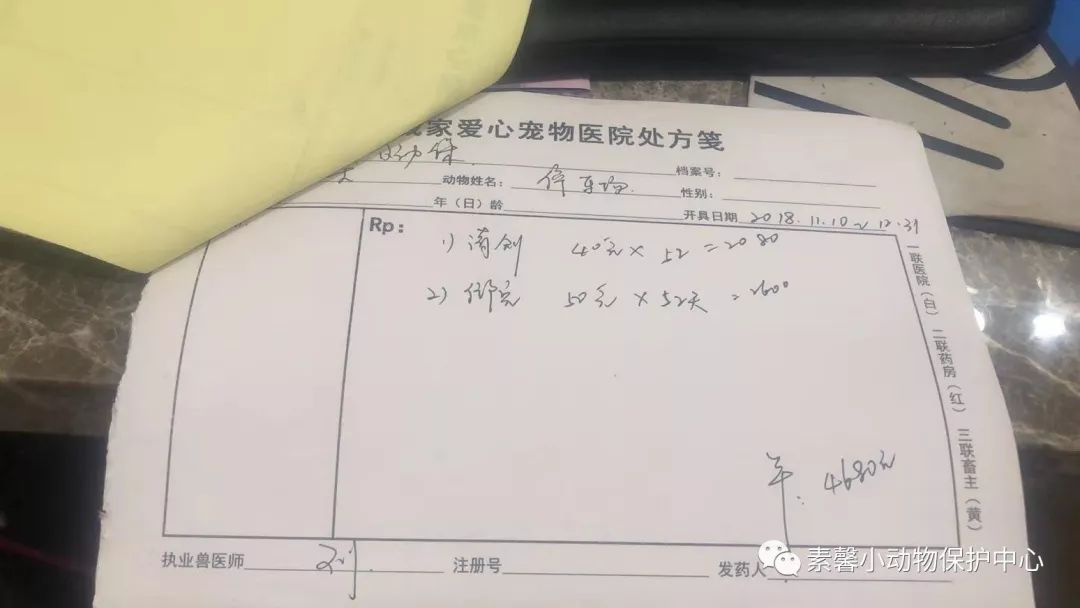 家爱心宠物医院处方笺
档案号：
动物姓名： 停车场 性别：
年（日）龄 开具日期 2018.11.10~12.31
Rp：
1) 清创 40元×52=2080
2) 住院 50元×52天=2600
4680元
执业兽医师 注册号 发药人
一联医院（白） 二联药房（红） 三联畜主（黄）
素馨小动物保护中心